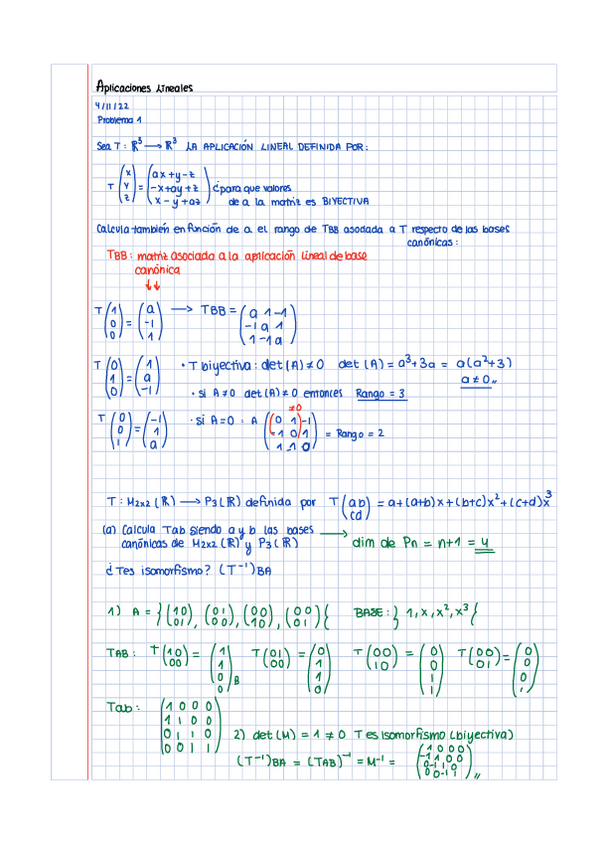 Aplicaciones Lineales
4/11/22
Problema 1
Sea T: ℝ³ → ℝ³ LA APLICACIÓN LINEAL DEFINIDA POR:
T (x y z) = (ax+y-z, -x+ay+z, x-y+az) ¿para que valores
de a la matriz es BIYECTIVA
Calcula también en función de a el rango de TBB asociada a T respecto de las bases
canónicas:
TBB: matriz asociada a la aplicación lineal de base
canónica
↓↓
T (1 0 0) = (a -1 1) → TBB = (a 1 -1
-1 a 1
1 -1 a)
T (0 1 0) = (1 a -1) • T biyectiva: det(A) ≠ 0 det(A) = a³+3a = a(a²+3)
a ≠ 0,,
· si A ≠ 0 det(A) ≠ 0 entonces Rango = 3
T (0 0 1) = (-1 1 a) · si A=0 : A (0 1 -1
-1 0 1
1 -1 0) ≠0 = Rango = 2
T: M2x2(ℝ) → P3(ℝ) definida por T (a b
c d) = a+(a+b)x+(b+c)x²+(c+d)x³
(a) Calcula Tab siendo a y b las bases →
canónicas de M2x2(ℝ) y P3(ℝ) dim de Pn = n+1 = 4
¿Tes isomorfismo? (T⁻¹)BA
1) A = }(1 0
0 1), (0 1
0 0), (0 0
1 0), (0 0
0 1){ BASE: } 1, x, x², x³ {
TAB: T(1 0
0 0) = (1 1 0 0)B T(0 1
0 0) = (0 1 1 0) T(0 0
1 0) = (0 0 1 1) T(0 0
0 1) = (0 0 0 1)
Tab: (1 0 0 0
1 1 0 0
0 1 1 0
0 0 1 1)
2) det(M) = 1 ≠ 0 T es Isomorfismo (biyectiva)
(T⁻¹)BA = (TAB)⁻¹ = M⁻¹ = (1 0 0 0
-1 1 0 0
0 -1 1 0
0 0 -1 1),,